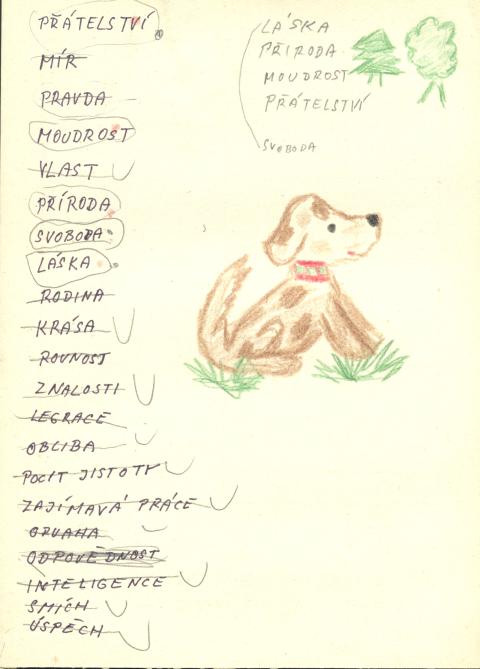 PŘÁTELSTVÍ
MÍR
PRAVDA
MOUDROST
VLAST
PŘÍRODA
SVOBODA
LÁSKA
RODINA
KRÁSA
ROVNOST
ZNALOSTI
LEGRACE
OBLIBA
POCIT JISTOTY
ZAJÍMAVÁ PRÁCE
ODVAHA
ODPOVĚDNOST
INTELIGENCE
SMÍCH
ÚSPĚCH
LÁSKA
PŘÍRODA
MOUDROST
PŘÁTELSTVÍ
SVOBODA